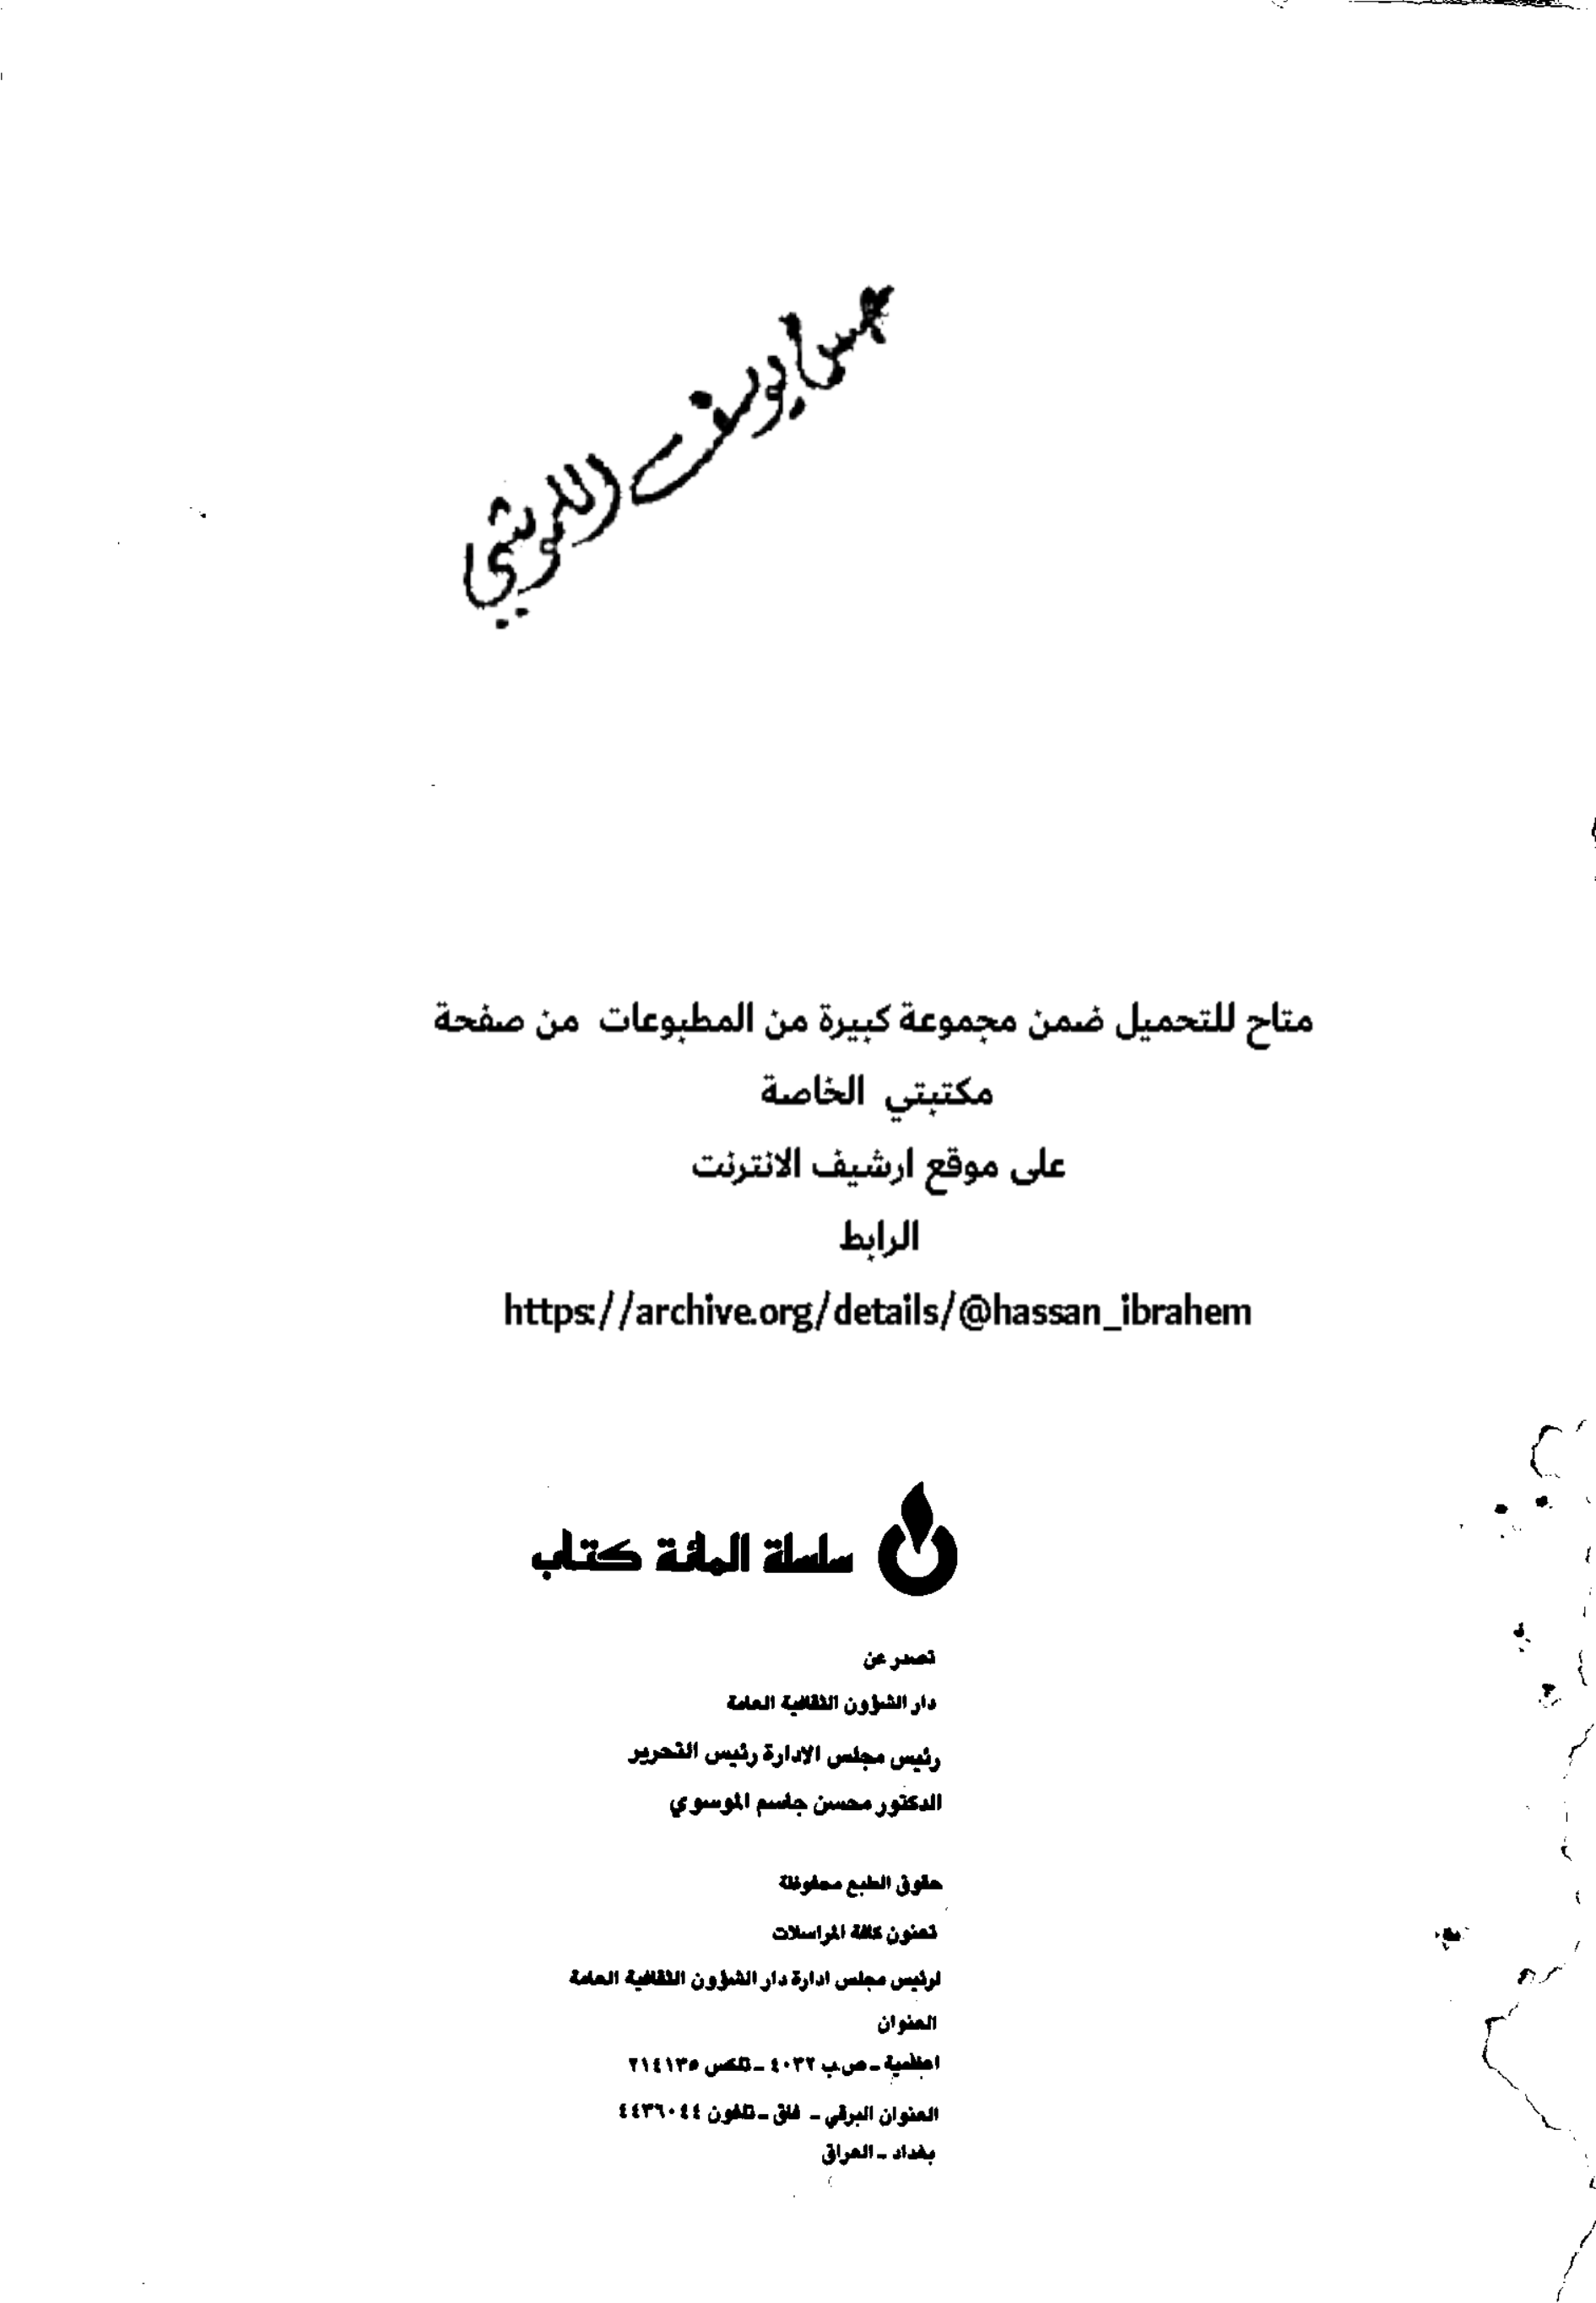 يوسف
متاح للتحميل ضمن مجموعة كبيرة من المطبوعات من صفحة
مكتبتي الخاصة
على موقع ارشيف الانترنت
الرابط
https://archive.org/details/@hassan_ibrahem
سلسلة المائة كتاب
تصدر عن
دار الشؤون الثقافية العامة
رئيس مجلس الادارة رئيس التحرير
الدكتور محسن جاسم الموسوي
حقوق الطبع محفوظة
تعنون كافة المراسلات
لرئيس مجلس ادارة دار الشؤون الثقافية العامة
العنوان
اعظمية ـ ص.ب ٤٠٣٢ ـ تلكس ٢١٤١٣٥
العنوان البرقي ـ فاق ـ تلفون ٤٤٣٦٠٤٤
بغداد ـ العراق